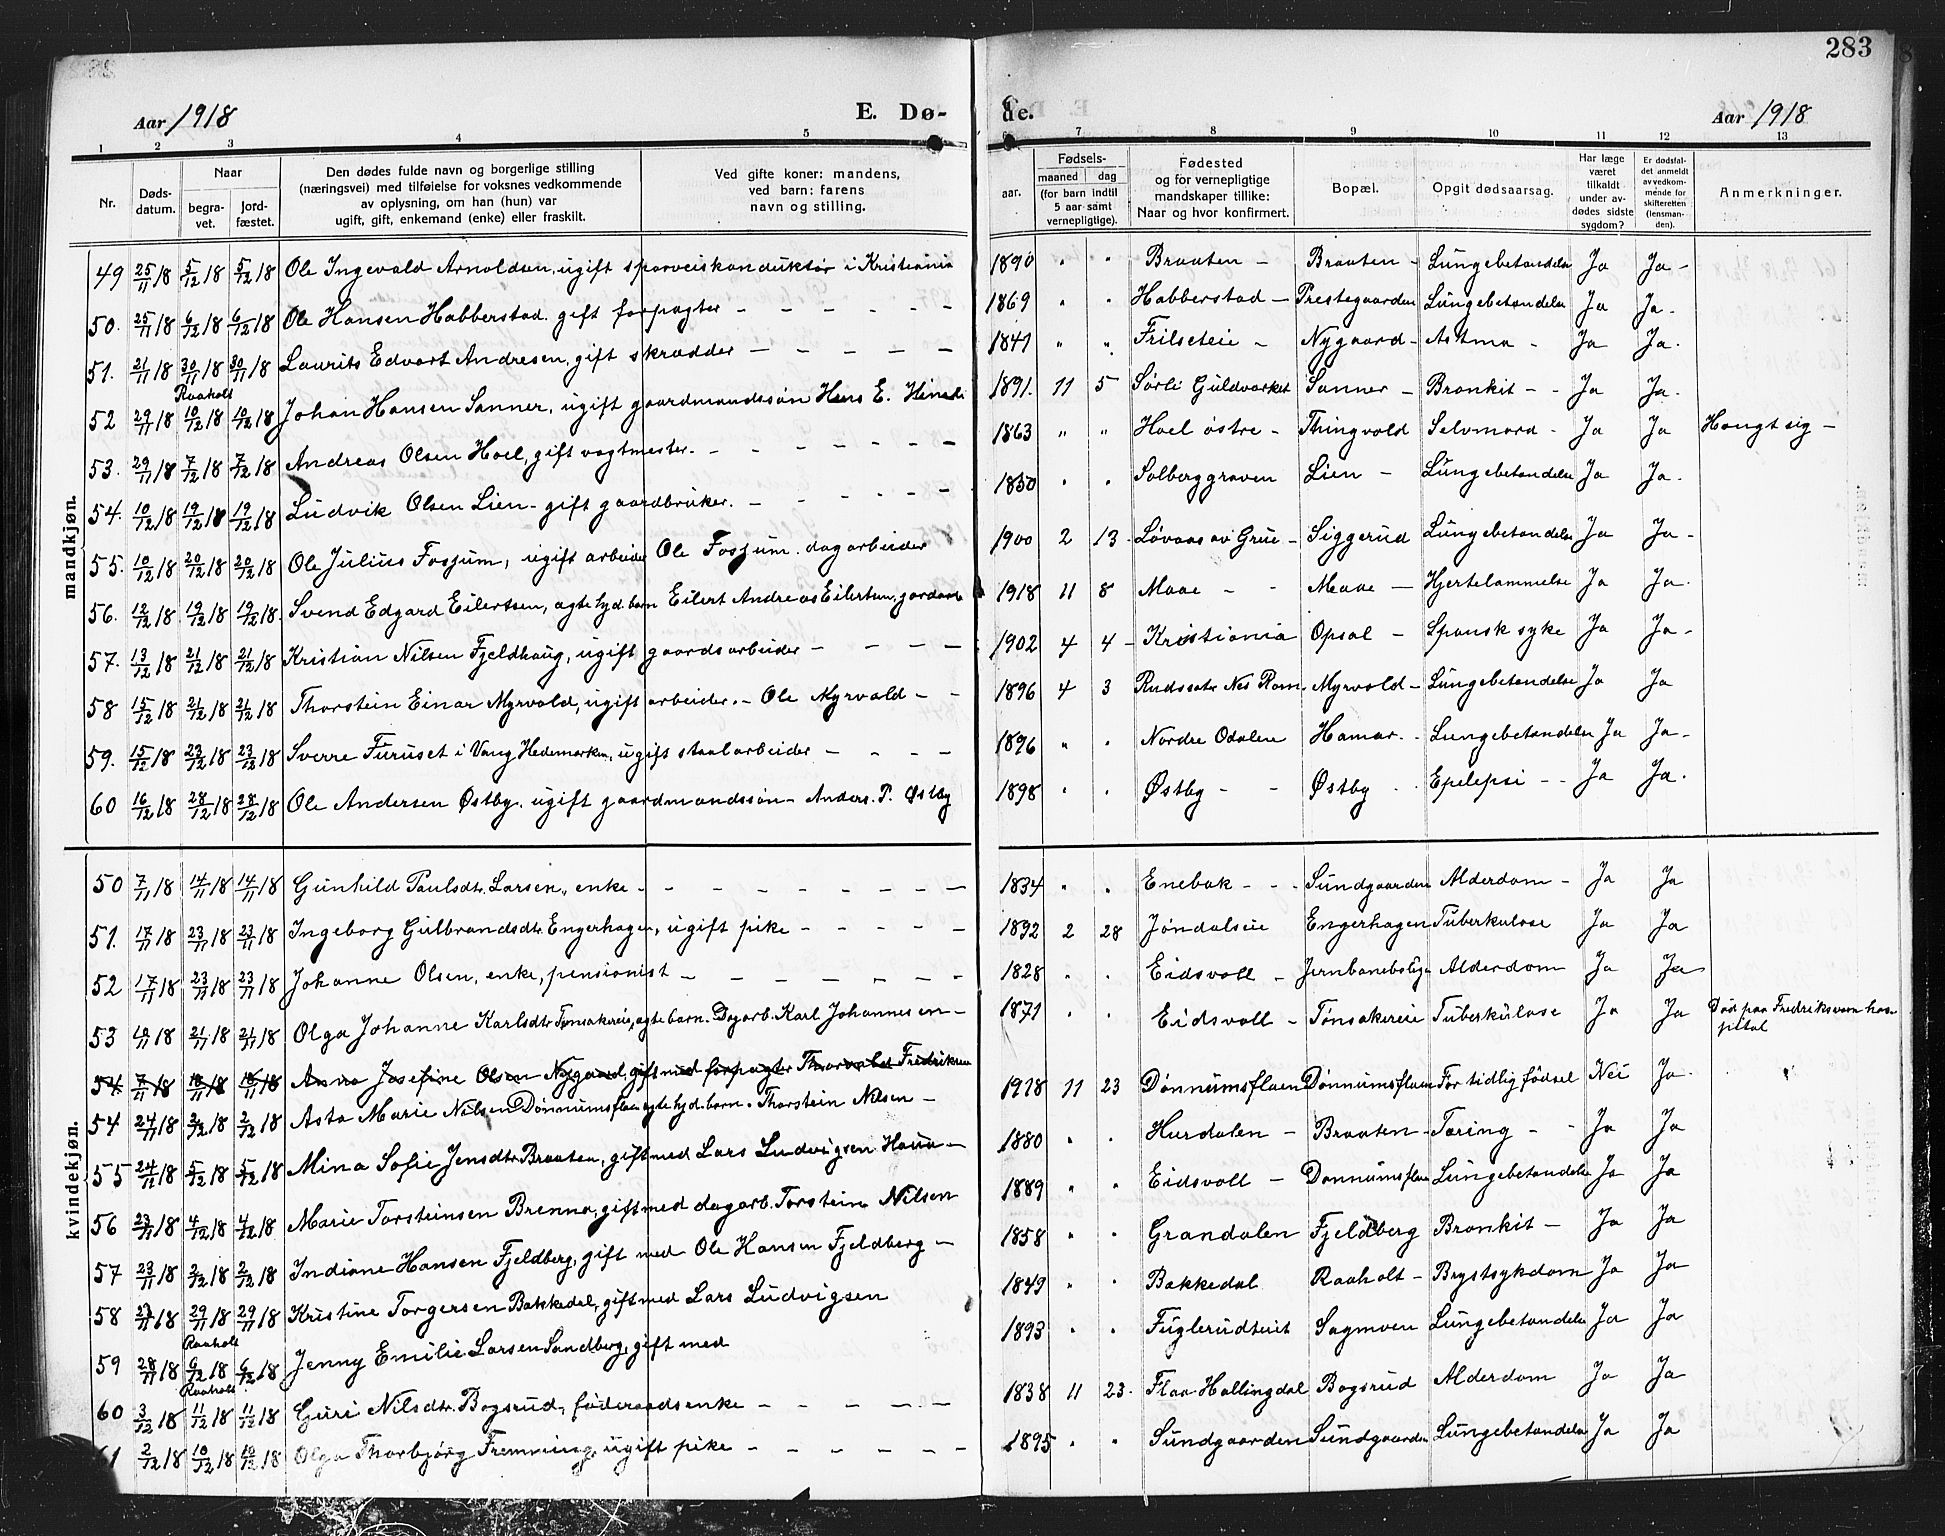 283
Aar 1918 E. Dø- de. Aar 1918
1 2 3 4 5 6 7 8 9 10 11 12 13
Nr. Døds-datum. Naar begra-vet. jord-fæstet. Den dødes fulde navn og borgerlige stilling (næringsvei) med tilføielse for voksnes vedkommende av oplysning, om han (hun) var ugift, gift, enkemand (enke) eller fraskilt. Ved gifte koner: mandens, ved barn: farens navn og stilling. aar. Fødsels- maaned dag (for barn indtil 5 aar samt vernepligtige). Fødested og for vernepligtige mandskaper tillike: Naar og hvor konfirmert. Bopæl. Opgit dødsaarsag. Har læge været tilkaldt under av-dødes sidste sygdom? Er dødsfal-det anmeldt av vedkom-mende for skifteretten (lensman-den). Anmerkninger.
mandkjøn.
49 25/11 18 5/12 18 5/12 18 Ole Ingevald Arnoldsen, ugift sporveiskonduktør i Kristiania 1890 " " Braaten - Braaten - Lungebetændelse Ja Ja -
50. 25/11 18 6/12 18 6/12 18 Ole Hansen Habberstad. gift forpagter - - - - - - 1869 " " Habberstad - Prestegaarden Lungebetændelse Ja Ja.
51. 21/11 18 30/11 18 30/11 18 Laurits Edvart Andresen, gift skrædder - - - - - 1841 " " Frilseteie - Nygaard - Astma - Ja Ja.
Raaholt
52 29/11 18 10/12 18 10/12 18 Johan Hansen Sanner, ugift gaardmandssøn Hans E. 1891. 11 5 Sørli Guldverket Sanner - Bronkit - - Ja Ja.
53. 29/11 18 7/12 18 7/12 18 Andreas Olsen Hoel, gift vagtmester. - - - - - - 1863 " " Hoel østre - Thingvold Selvmord - Ja Ja Hængt sig -
54. 10/12 18 19/12 18 19/12 18 Ludvik Olsen Lien - gift gaardbruker. - - - - - 1850 " " Solberggraven Lien - Lungebetændelse Ja Ja.
55. 10/12 18 20/12 18 20/12 18 Ole Julius Fosjum, ugift arbeider Ole Fosjum. dagarbeider 1900 2 13 - Løvaas av Grue - Siggerud Lungebetændelse Ja Ja -
56. 12/12 18 19/12 18 19/12 18. Svend Edgard Eilertsen, ægte hjd. barn Eilert Andreas Eilertsen, 1918 11 8 Maae - - Maae - Hjertelammelse Ja Ja.
57. 13/12 18 21/12 18 21/12 18 Kristian Nilsen Fjeldhaug, ugift gaardsarbeider - - - - 1902 4 4 - Kristiania Opsal - Spansk syke Ja Ja -
58 15/12 18 21/12 18 21/12 18 Thorstein Einar Myrvold, ugift arbeider. - Ole Myrvold - - 1896 4 3 Rudssætr Nes Rom. Myrvold - Lungebetændelse Ja Ja
59. 15/12 18 23/12 18 23/12 18 Sverre Furuset i Vang Hedemarken, ugift staalarbeider - - - - 1896 " " Nordre Odalen Hamar. - Lungebetændelse Ja Ja -
60 16/12 18 28/12 18 28/12 18 Ole Andersen Østby. ugift gaardmandssøn - Anders. P. Østby 1898 " " Østby - - Østby - - Epelepsi - - Ja Ja.
kvindekjøn.
50 7/11 18 14/11 18 14/11 18 Gunhild Paulsdtr. Larsen, enke - - - - - - - - 1834 " " Enebak - - - Sundgaarden Alderdom - Ja Ja
51. 17/11 18 23/11 18 23/11 18 Ingeborg Gulbrandsdtr. Engerhagen, ugift pike - - - - - 1892 2 28 Jøndalseie Engerhagen Tuberkulose Ja Ja
52 17/11 18 23/11 18 23/11 18 Johanne Olsen, enke, pensionist - - - - - - 1828 " " Eidsvoll - Jernbanebolig Alderdom Ja Ja
53 18 21/11 18 21/11 18 Olga Johanne Karlsdtr Tønsakereie, ægte barn. Dagarb. Karl Johannesen - 1871 " " Eidsvoll - Tønsakereie Tuberkulose Ja Ja Død paa Fredriksvern hospital
54 7/11 18 18/11 18 18/11 18 Anna Josefine Olsen Nygaard, gift med forpagter Thorvald Fredriksen
54 24/11 18 2/12 18 2/12 18 Asta Marie Nilsen Dønnumsflaen ægte hjd. barn. Thorstein Nilsen - 1918 11 23 Dønnumsflaen Dønnumsflaen For tidlig fødsel Nei Ja
55 24/11 18 5/12 18 5/12 18 Mina Sofie Jensdtr Braaten, gift med Lars Ludvigsen 1880 " " Hurdalen - Braaten - Tæring - - Ja Ja
56 23/11 18 4/12 18 4/12 18 Marie Torsteinsen Brenna, gift med dagarb. Torstein Nilsen 1889 " " Eidsvoll - Dønnumsflaen Lungebetændelse Ja Ja
57 23/11 18 2/12 18 2/12 18 Indiane Hansen Fjeldberg, gift med Ole Hansen Fjeldberg - 1858 " " Grandalen Fjeldberg Bronkit - Ja Ja
58 18 29/11 18 29/11 18 Kristine Torgersen Bakkedal, gift med Lars Ludvigsen 1849 " " Bakkedal Raaholt - Brystsykdom Ja Ja
Raaholt
59 28/11 18 6/12 18 6/12 18 Jenny Emilie Larsen Sandberg, gift med 1893 " " Fuglerudteiet Sagmoen Lungebetændelse Ja Ja
Raaholt
60 3/12 18 11/12 18 11/12 18 Guri Nilsdtr. Bogsrud, føderaadsenke - - - - - 1838 11 23 - Flaa Hallingdal Bogsrud Alderdom Ja Ja
61 2/12 18 10/12 18 10/12 18 Olga Thorbjørg Fremming, ugift pike - - - - - - 1895 " " Sundgaarden Sundgaarden Lungebetændelse Ja Ja